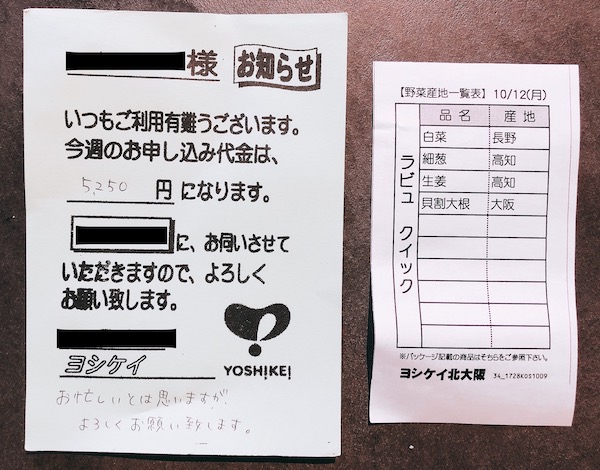 様 お知らせ
いつもご利用有難うございます。
今週のお申し込み代金は、
5,250 円になります。
に、お伺いさせて
いただきますので、よろしく
お願い致します。
ヨシケイ
YOSHIKEI
お忙しいとは思いますが
よろしくお願い致します。
【野菜産地一覧表】 10/12(月)
ラビュ クイック
品名 産地
白菜 長野
細葱 高知
生姜 高知
貝割大根 大阪
※パッケージ記載の商品はそちらをご参照下さい。
ヨシケイ北大阪 34_1728kos1009